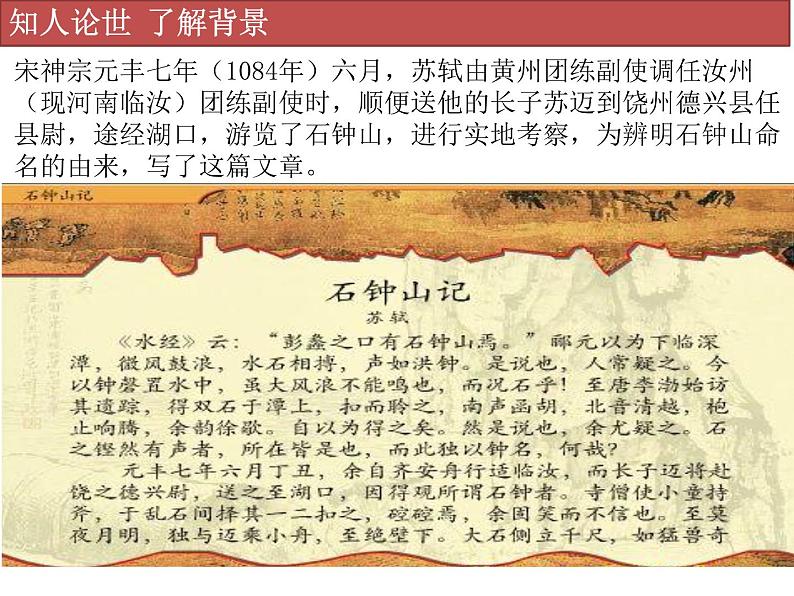 知人论世 了解背景
宋神宗元丰七年（1084年）六月，苏轼由黄州团练副使调任汝州
（现河南临汝）团练副使时，顺便送他的长子苏迈到饶州德兴县任
县尉，途经湖口，游览了石钟山，进行实地考察，为辨明石钟山命
名的由来，写了这篇文章。
石钟山记
石钟山记
苏轼
《水经》云：“彭蠡之口有石钟山焉。”郦元以为下临深
潭，微风鼓浪，水石相搏，声如洪钟。是说也，人常疑之。今
以钟磬置水中，虽大风浪不能鸣也，而况石乎！至唐李渤始访
其遗踪，得双石于潭上，扣而聆之，南声函胡，北音清越，枹
止响腾，余韵徐歇。自以为得之矣。然是说也，余尤疑之。石
之铿然有声者，所在皆是也，而此独以钟名，何哉？
元丰七年六月丁丑，余自齐安舟行适临汝，而长子迈将赴
饶之德兴尉，送之至湖口，因得观所谓石钟者。寺僧使小童持
斧，于乱石间择其一二扣之，硿硿焉，余固笑而不信也。至莫
夜月明，独与迈乘小舟，至绝壁下。大石侧立千尺，如猛兽奇